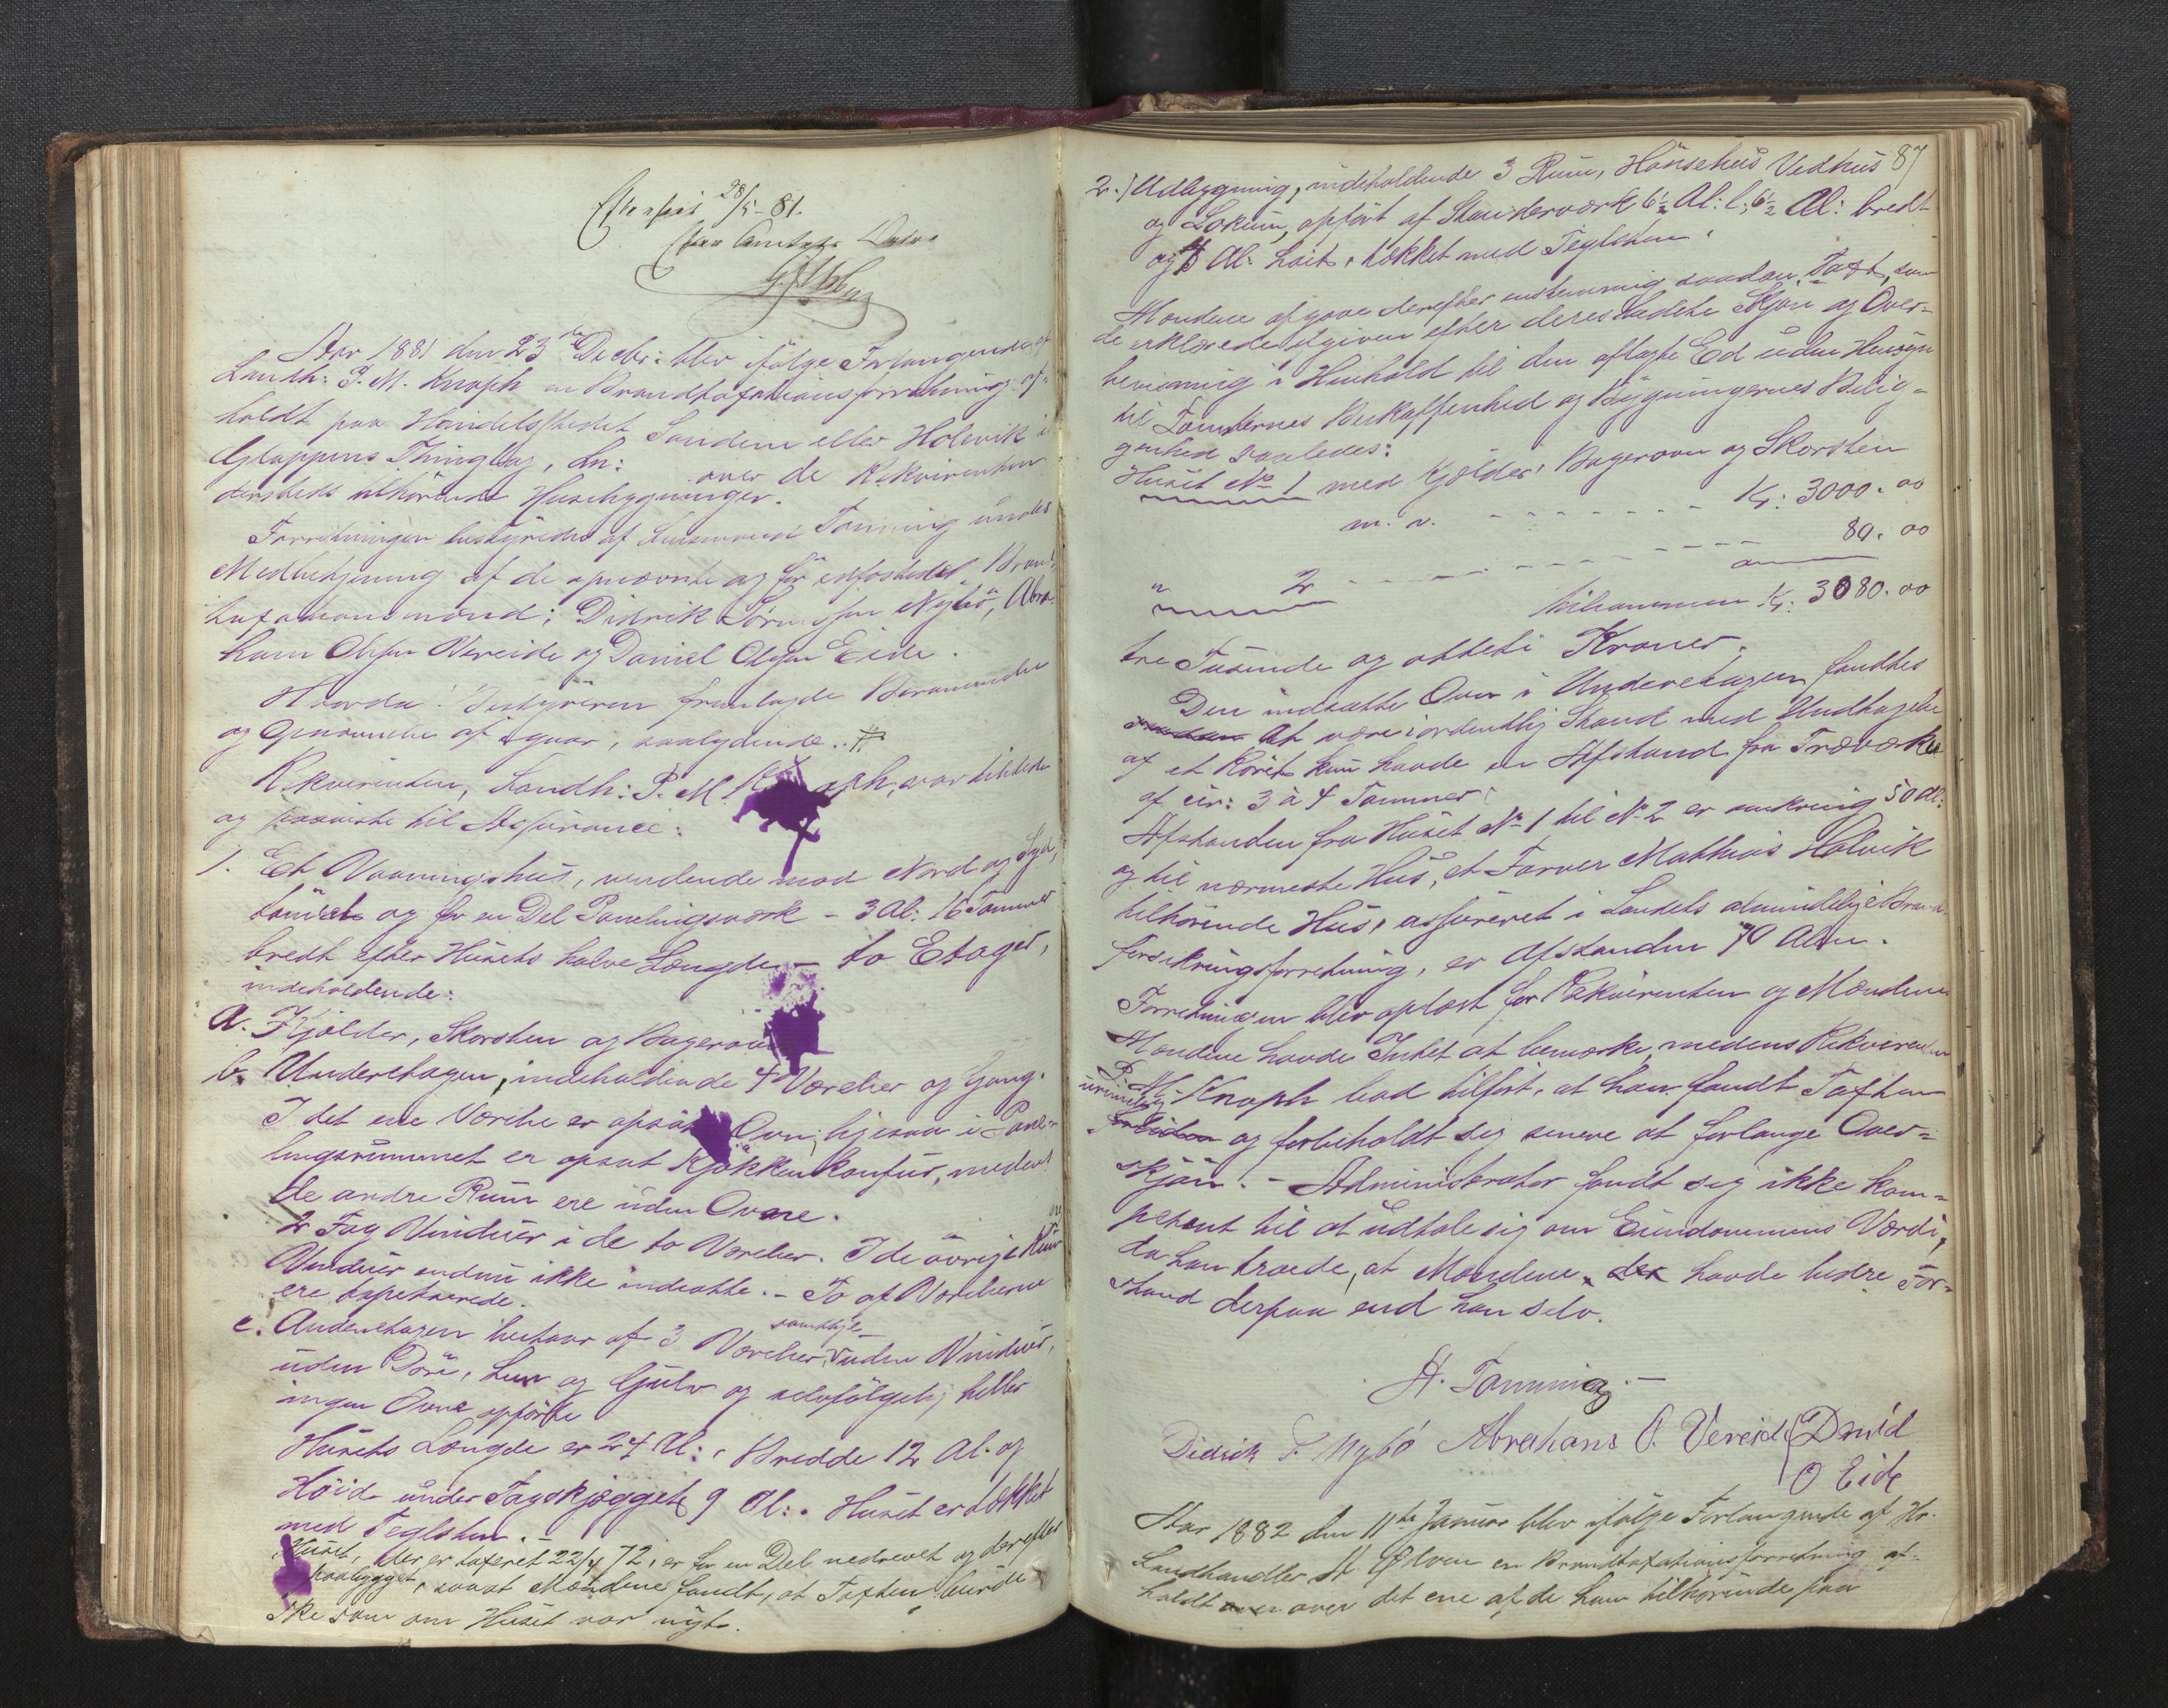 Efterseet 28/5-81.
Aar 1881 den 23de Decbr: blev ifølge Forlangende af
Landh: P. M. Knoph en Brandtaxationsforretning af-
holdt paa Handelsstedet Sandene eller Holevik i
Gloppens Thinglag, over de Rekvirenten
dersteds tilhörende Husebygninger.
Forretningen bestyredes af Lensmand Tanning under
Medbetjening af de opnævnte og för edfæstede Brand-
taxationsmænd; Didrik Sörensen Nybö, Abra-
ham Olsen Vereide og Daniel Olsen Eide.
Hvorda! Bestyreren fremlagde Berammelse
og Opnævnelse af igaar, saalydende.. #
Rekvirenten, Landh: P. M. Knoph, var tilstede
og paaviste til Assurance:
1. Et Vaaningshus, vendende mod Nord og Syd,
tömret og for en Del Panelingsværk - 3 Al: 16 Tommer
bredt efter Husets halve Længde - to Etager,
indeholdende:
a. Kjelder, Skorsten og Bagerovn
b. Underetagen, indeholdende 4 Værelser og Gang.
I det ene Værelse er opsat Ovn; ligesaa i Pane-
lingsrummet er opsat Kjökkenkomfur, medens
de andre Rum ere uden Ovne.
2 Fag Vinduer i de to Værelser. I de övrige Rum ere
Vinduer endnu ikke indsatte. - To af Værelserne
ere tapetserede.
c. Andenetagen bestaar af 3 Værelser, samtlige uden Vinduer,
uden Döre, Lem og Gulv og selvfölgelig heller
ingen Ovne opförte
Husets Længde er 24 Al:, Bredde 12 Al. og
Höide under Tagskjægget 9 Al:. Huset er tækket
med Teglsten. -
Huset, der er taxeret 22/4 72, er for en Del nedrevet og derefter
paabygget, saaat Mændene fandt, at Taxten burde
ske som om Huset var nyt.
87
2.) Udbygning, indeholdende 3 Rum, Hönsehus Vedhus
og Lokum, opfört af Standerværk 6½ Al: l; 6½ Al: bredt
og Al: höit, tækket med Teglsten.
Mændene afgave derefter enstemmig saadan Taxt, som
de erklærede afgiven efter deres bedste Skjön og Over-
bevisning i Henhold til den aflagte Ed uden Hensyn
til Tomternes Beskaffenhed og Bygningernes Belig-
genhed saaledes:
Huset No 1 med Kjelder, Bagerovn og Skorsten
m. v. - - - - - - - Kr: 3000.00
" 2 - - - - - - - 80.00
tilsammen Kr: 3080.00
tre Tusinde og otteti Kroner.
Den indsatte Ovn i Underetagen fandtes
at være i ordentlig Stand med Undtagelse
af et Rörets kun havde en Afstand fra Træværket
af cir: 3 à 4 Tommer.
Afstanden fra Huset No 1 til No 2 er omkring 50 Al:
og til nærmeste Hus, et Farver Mathias Holvik
tilhörende Hus, assureret i Landets almindelige Brand-
forsikringsforretning, er Afstanden 70 Alen.
Forretningen blev oplæst for Rekvirenten og Mændene
Mændene havde Intet at bemærke, medens Rekvirenten
P. M. Knoph bad tilfört, at han fandt Taxten
urimelig og forbeholdt sig senere at forlange Over-
skjön. - Administrator fandt sig ikke kom-
petent til at udtale sig om Eiendommens Værdi,
da han troede, at Mændene havde bedre For-
stand derpaa end han selv.
A. Tanning. -
Didrik S. Nybó Abraham O. Vereide Daniel
O Eide
Aar 1882 den 11te Januar blev ifölge Forlangende af Hr.
Landhandler A. Elven en Brandtaxationsforretning af-
holdt over det ene af de ham tilhörende paa